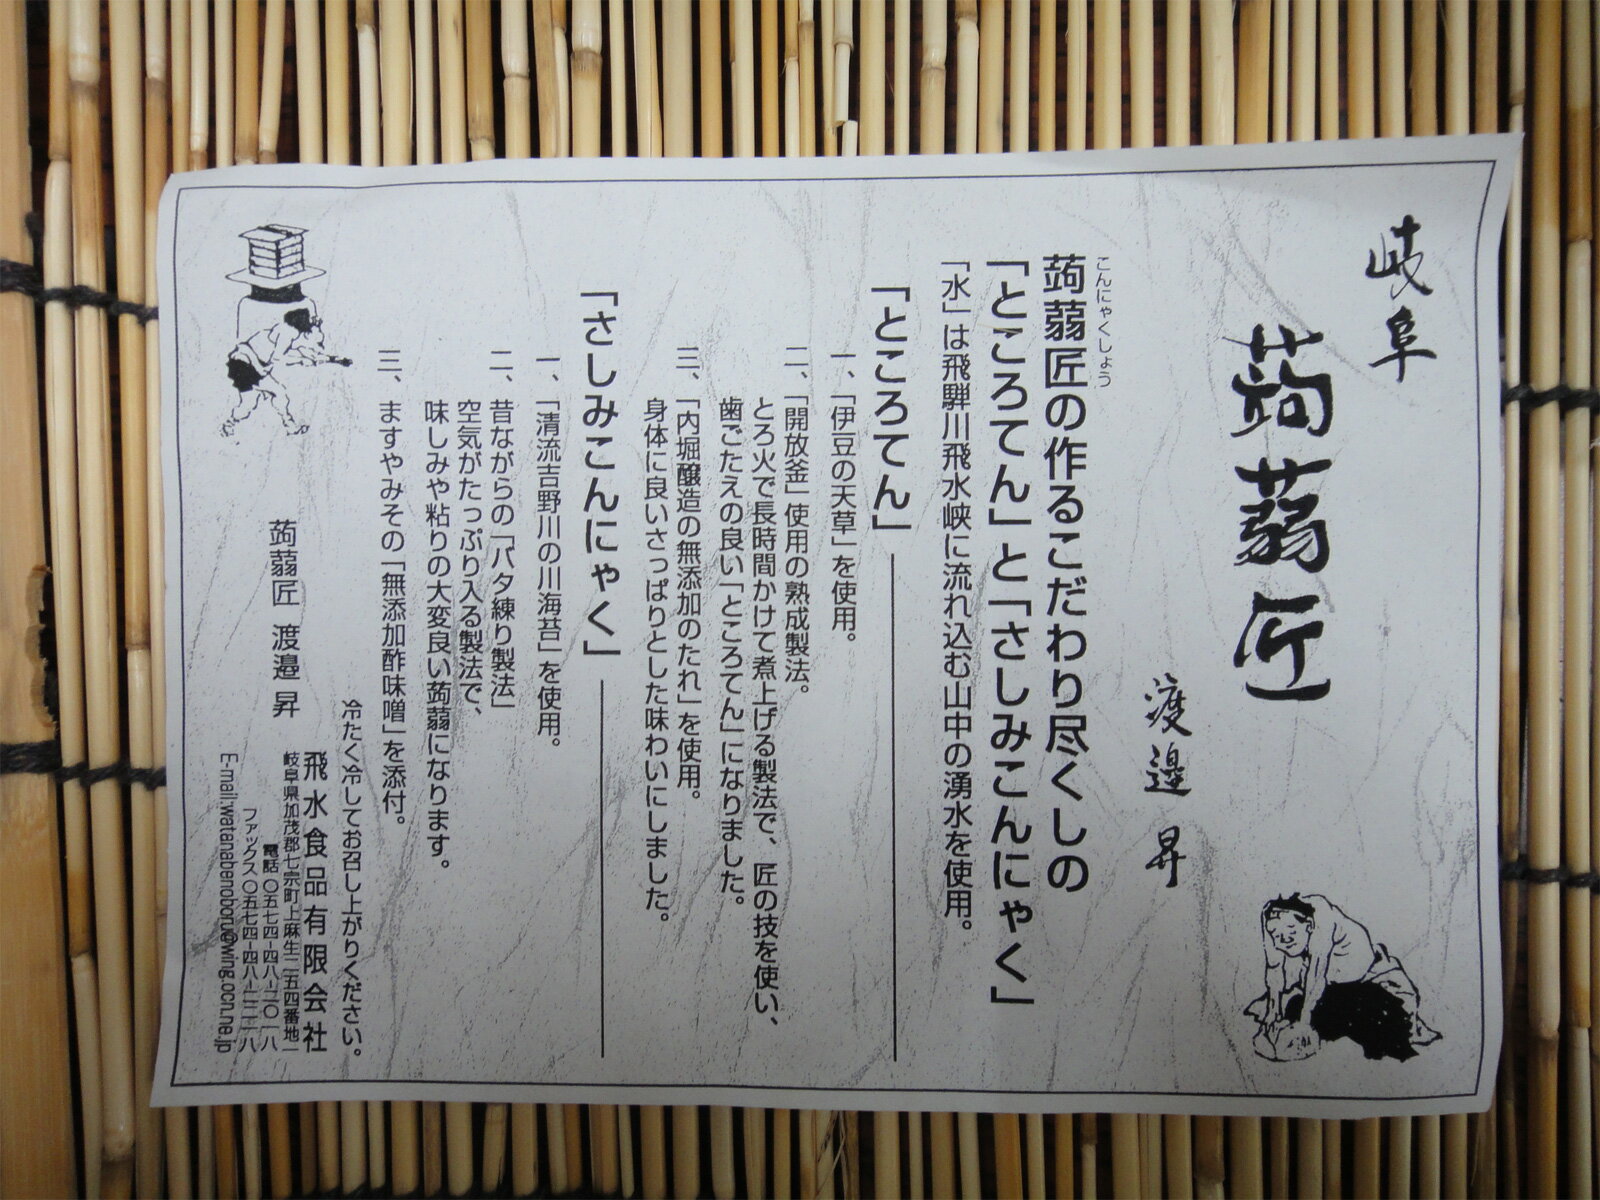 岐阜
蒟蒻匠
渡邉 昇
こんにゃくしょう
蒟蒻匠の作るこだわり尽くしの
「ところてん」と「さしみこんにゃく」
「水」は飛騨川飛水峡に流れ込む山中の湧水を使用。
「ところてん」
一、「伊豆の天草」を使用。
二、「開放釜」使用の熟成製法。
とろ火で長時間かけて煮上げる製法で、匠の技を使い、
歯ごたえの良い「ところてん」になりました。
三、「内堀醸造の無添加のたれ」を使用。
身体に良いさっぱりとした味わいにしました。
「さしみこんにゃく」
一、「清流吉野川の川海苔」を使用。
二、昔ながらの「バタ練り製法」
空気がたっぷり入る製法で、
味しみや粘りの大変良い蒟蒻になります。
三、ますやみその「無添加酢味噌」を添付。
冷たく冷してお召し上がりください。
飛水食品有限会社
岐阜県加茂郡七宗町上麻生二五四番地一
蒟蒻匠 渡邉 昇
電話 〇五七四-四八-二〇一八
ファックス 〇五七四-四八-二二一八
E-mail:watanabenoboru@wing.ocn.ne.jp